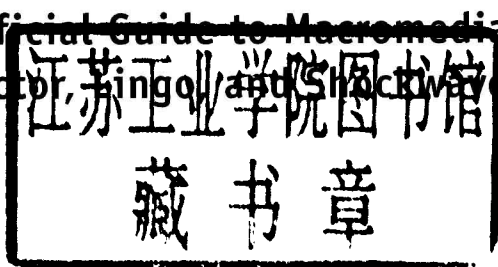 ficial Guide to Macromedia
ctor, Lingo, and Shockwave
江苏工业学院图书馆
藏书章